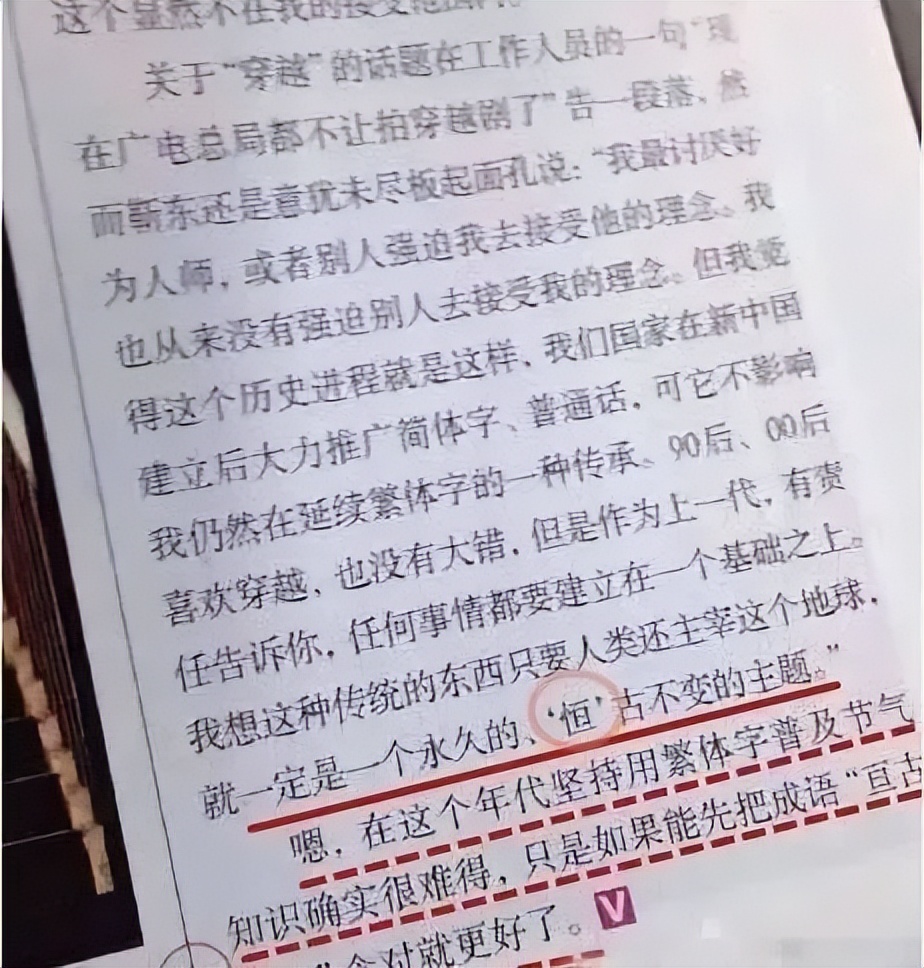 这个显然不在我的接受范围内
关于“穿越”的话题在工作人员的一句“现
在广电总局都不让拍穿越剧了”告一段落，然
而靳东还是意犹未尽板起面孔说：“我最讨厌好
为人师，或者别人强迫我去接受他的理念、我
也从来没有强迫别人去接受我的理念。但我觉
得这个历史进程就是这样、我们国家在新中国
建立后大力推广简体字、普通话，可它不影响
我仍然在延续繁体字的一种传承、90后、00后
喜欢穿越、也没有大错，但是作为上一代，有责
任告诉你，任何事情都要建立在一个基础之上。
我想这种传统的东西只要人类还主宰这个地球，
就一定是一个永久的、‘恒’古不变的主题。”
嗯，在这个年代坚持用繁体字普及节气
知识确实很难得，只是如果能先把成语“亘古
对就更好了。V